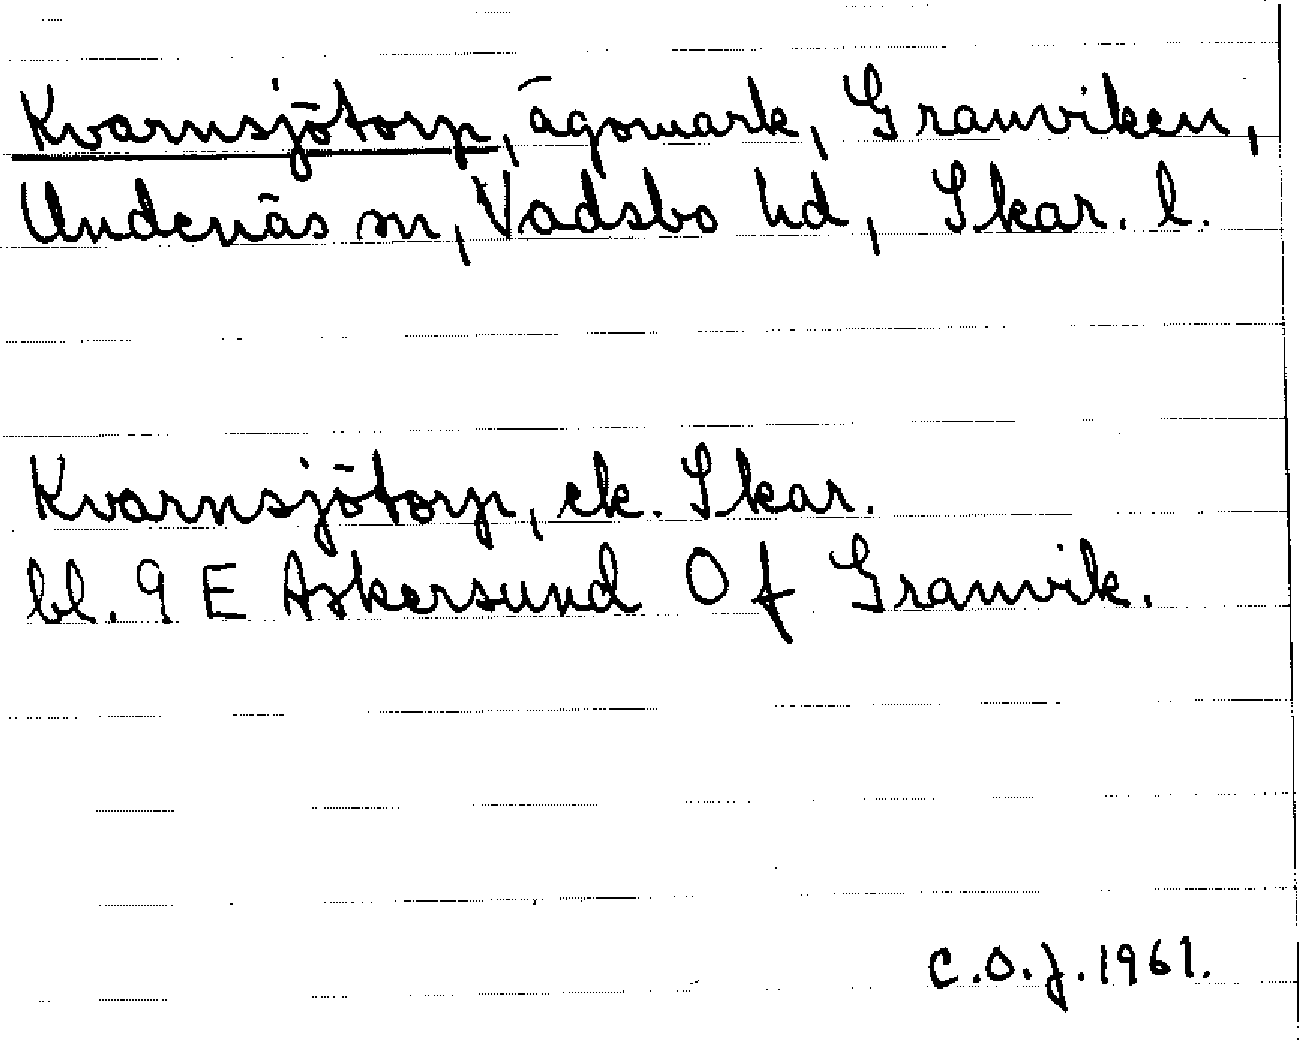 Kvarnsjötorp, ägomark, Granviken,
Undenäs sn, Vadsbo hd, Skar. l.
Kvarnsjötorp, ek. Skar.
bl. 9 E Askersund 0 f Granvik.
C.O.J. 1961.